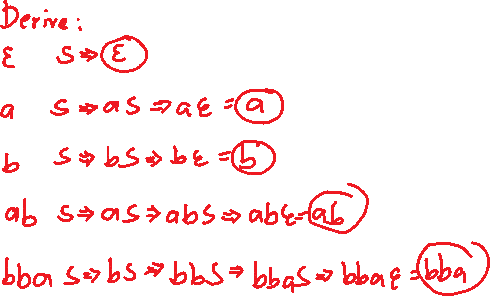 Derive:
ε S ⇒ ε
a S ⇒ aS ⇒ aε = a
b S ⇒ bS ⇒ bε = b
ab S ⇒ aS ⇒ abS ⇒ abε = ab
bba S ⇒ bS ⇒ bbS ⇒ bbaS ⇒ bbaε = bba